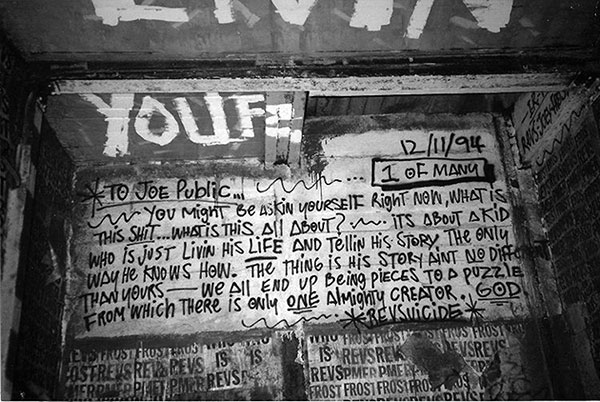 YOU
12/11/94
1 OF MANY
*TO JOE PUBLIC...
YOU MIGHT BE ASKIN YOURSELF RIGHT NOW, WHAT IS
THIS SHIT...WHAT IS THIS ALL ABOUT? ITS ABOUT A KID
WHO IS JUST LIVIN HIS LIFE AND TELLIN HIS STORY. THE ONLY
WAY HE KNOWS HOW. THE THING IS HIS STORY AINT NO
THAN YOURS — WE ALL END UP BEING PIECES TO A PUZZLE
FROM WHICH THERE IS ONLY ONE ALMIGHTY CREATOR. GOD
*REVSUICIDE*
REVS FROST FROST REVS WHO
IS FROST FROST REVS
FROST REVS REVS IS REVS REVS
PMER PMER REVS REVS PMER FROST FROST
FROST FROST REVS